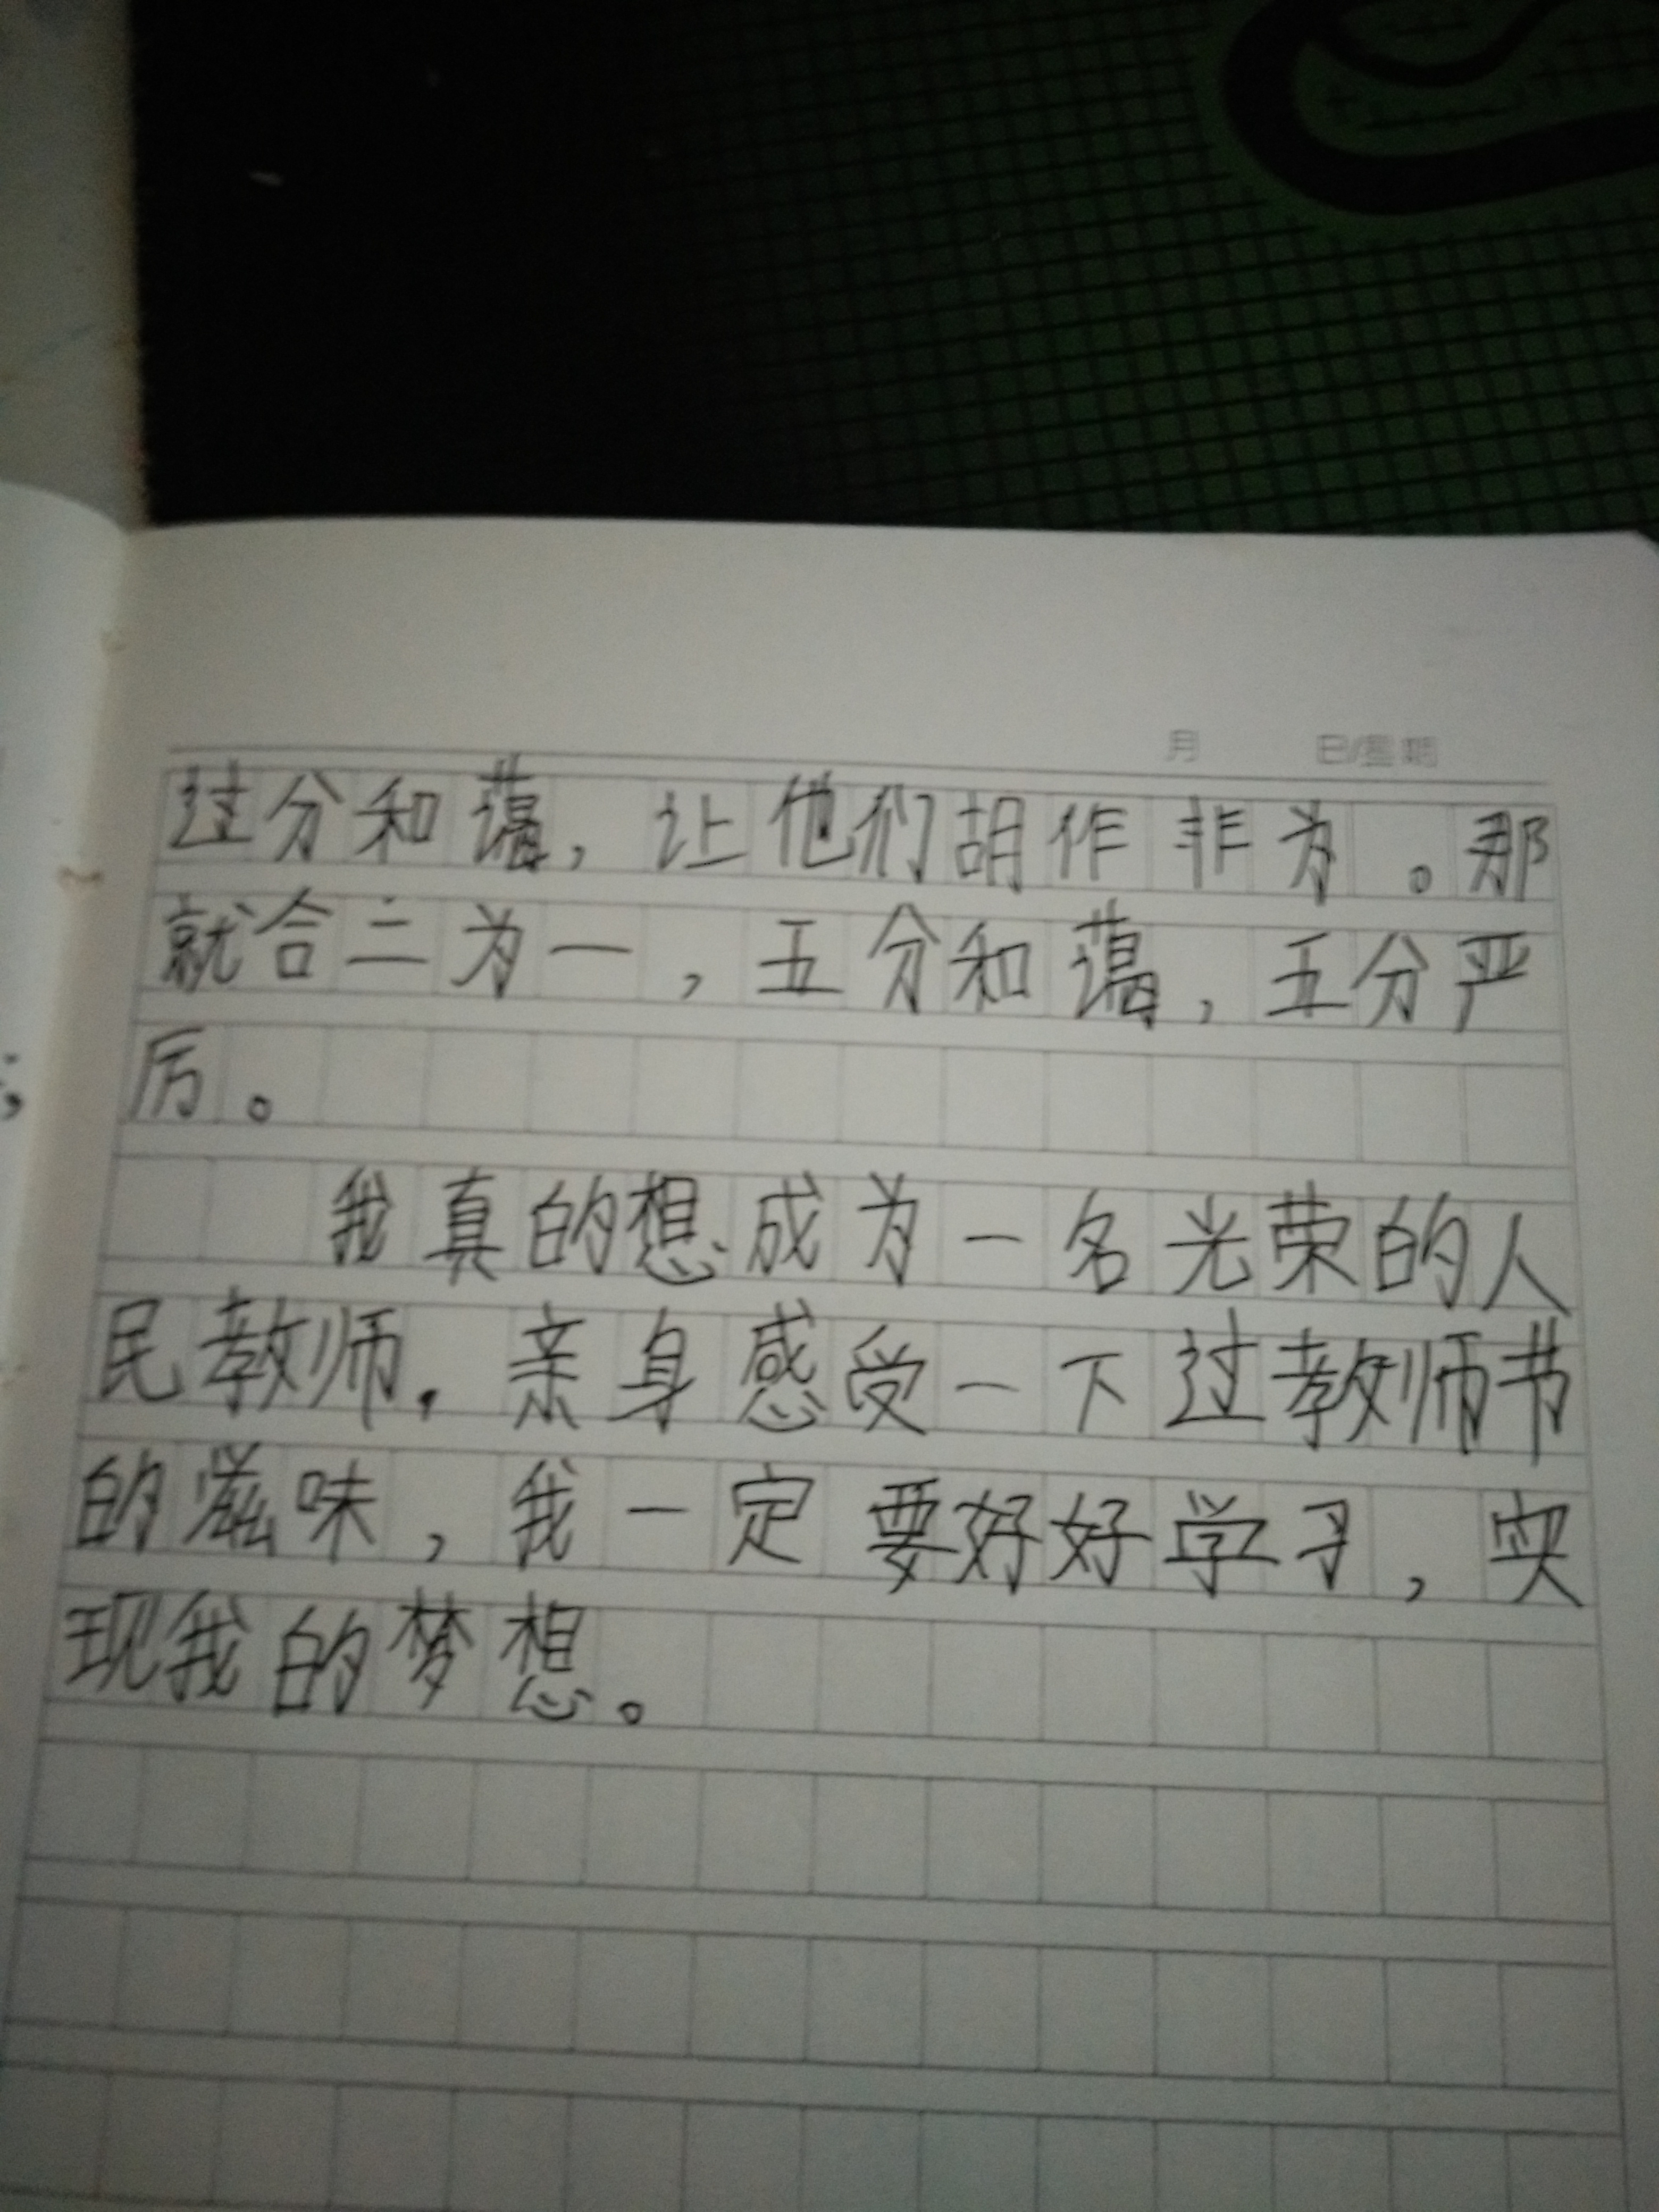 月 日/星期
过分和蔼，让他们胡作非为。那
就合二为一，五分和蔼，五分严
厉。
我真的想成为一名光荣的人
民教师，亲身感受一下过教师节
的滋味，我一定要好好学习，实
现我的梦想。